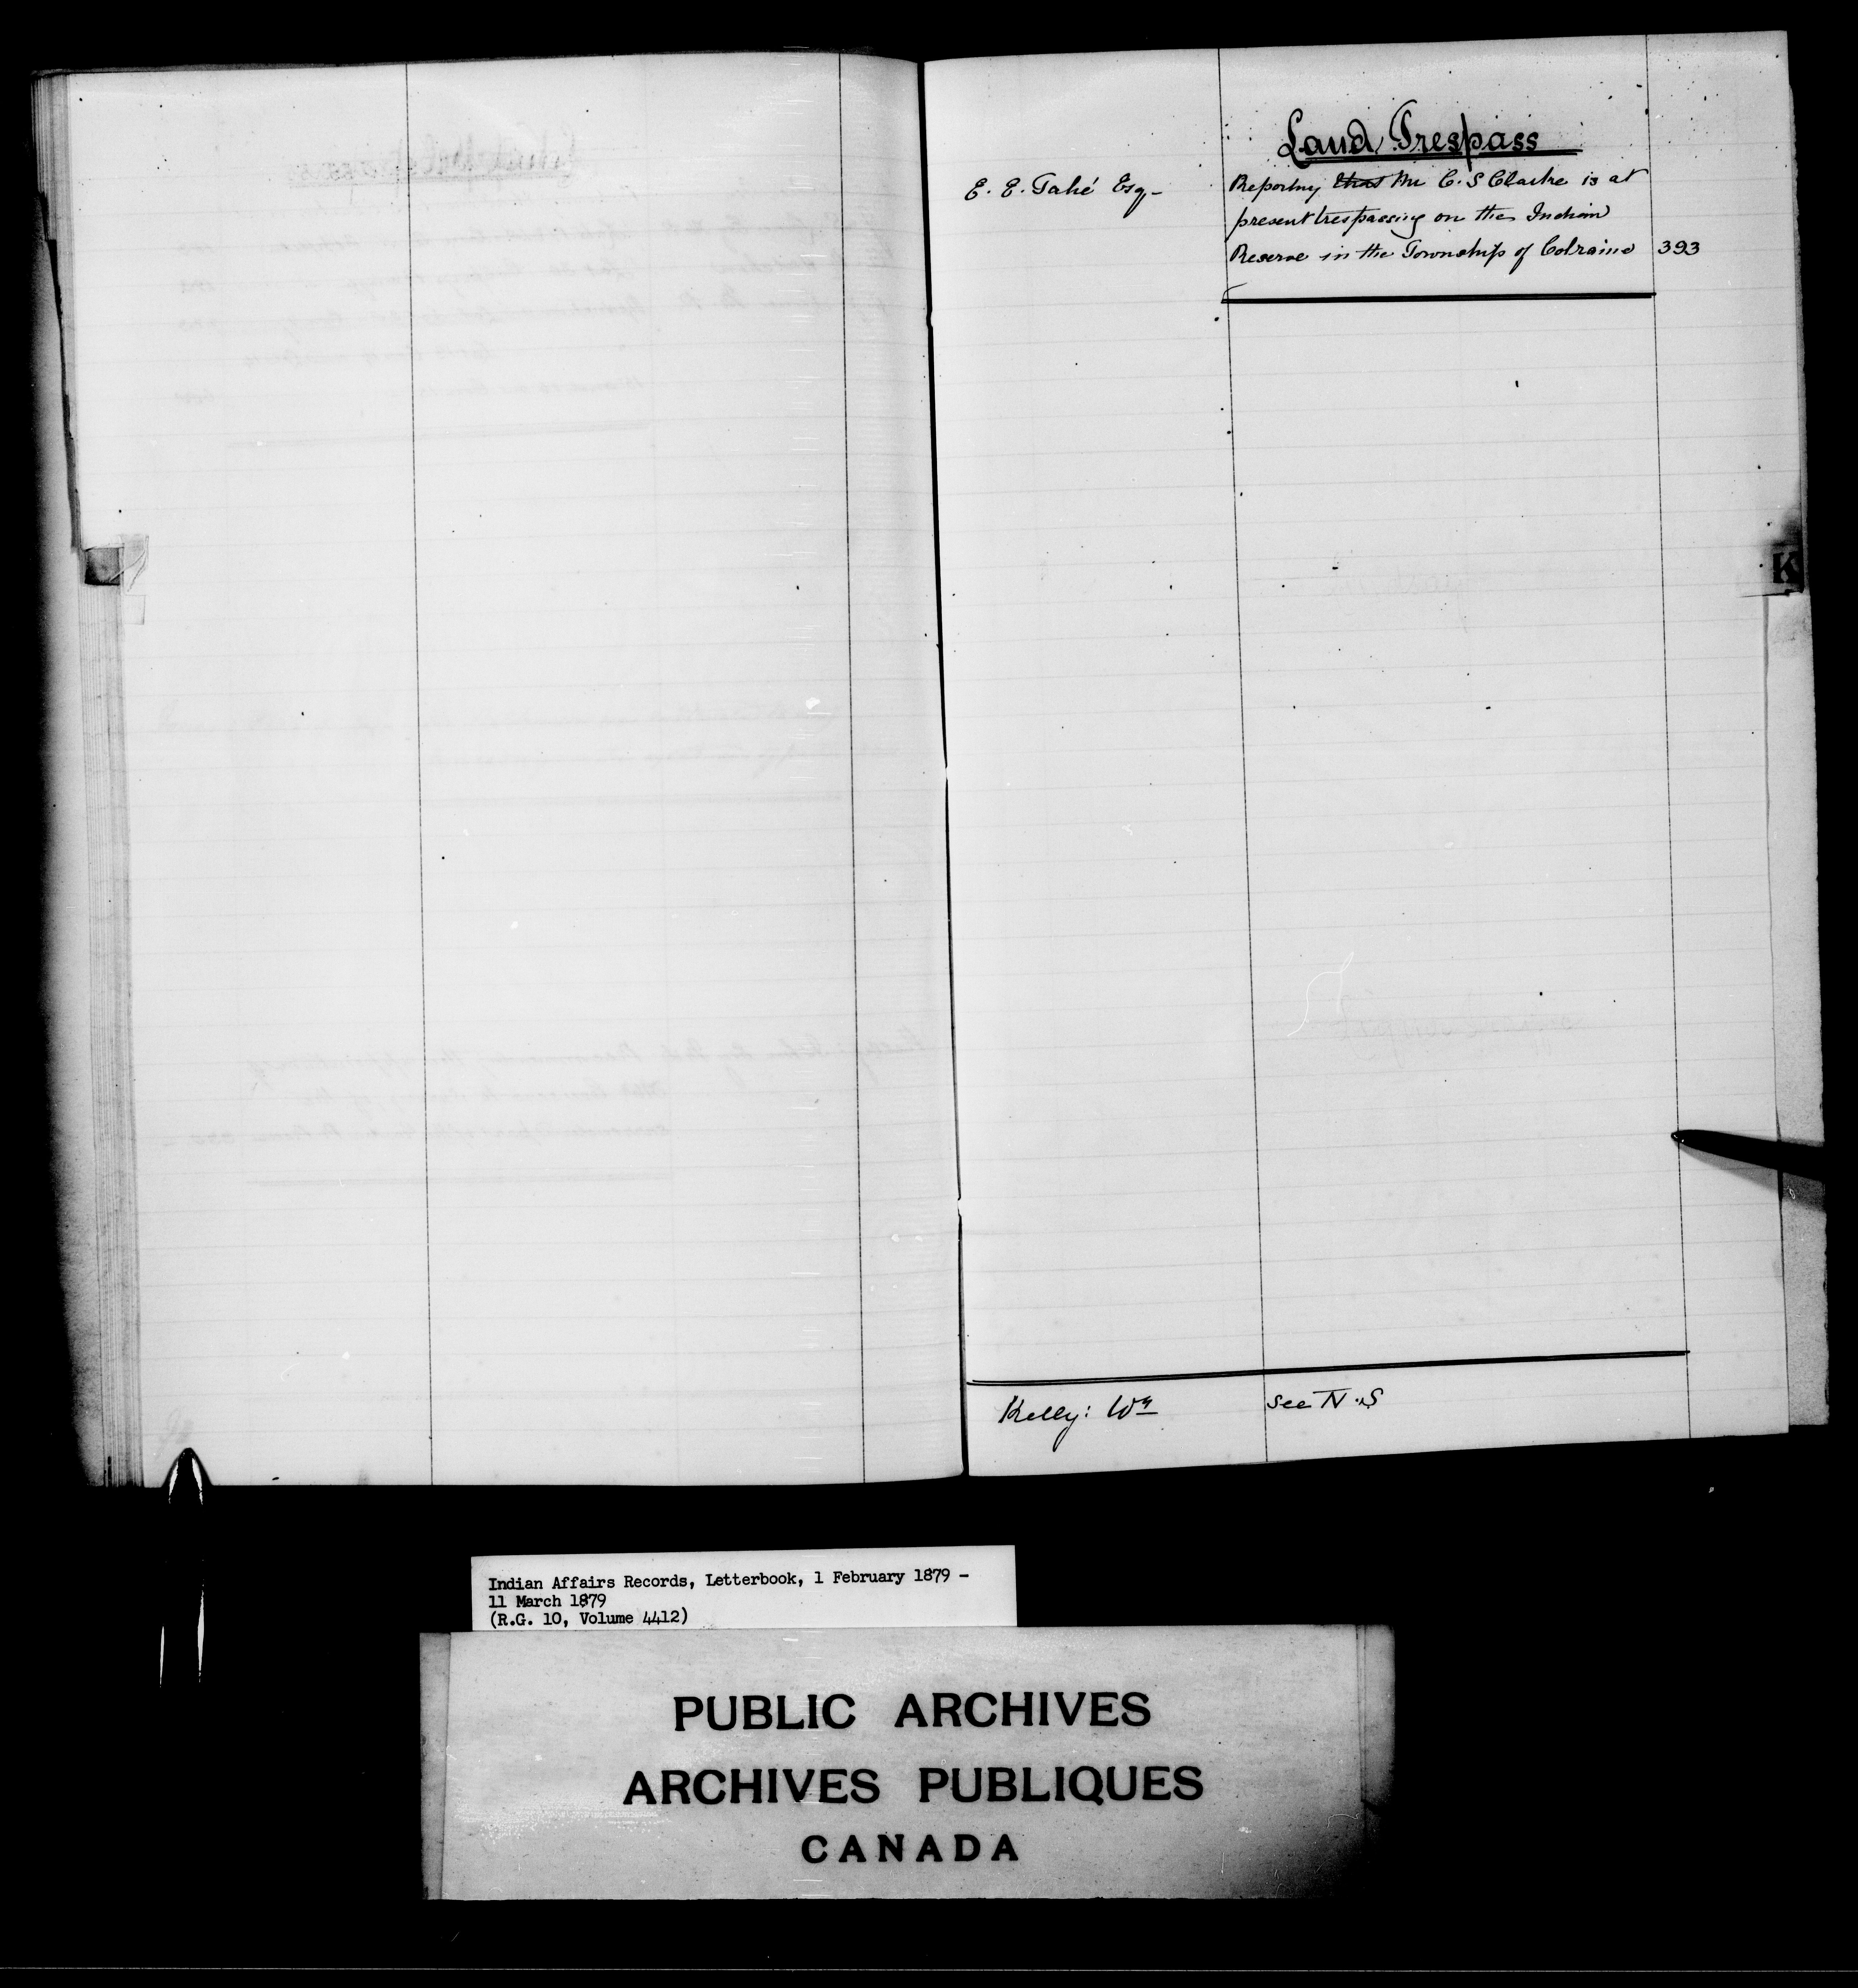 Land Trespass
E. E. Taché Esq-
Reporting that Mr C. S Clarke is at
present trespassing on the Indian
Reserve in the Township of Colraine 393
K
Kelly: Wm see N.S
Indian Affairs Records, Letterbook, 1 February 1879 -
11 March 1879
(R.G. 10, Volume 4412)
PUBLIC ARCHIVES
ARCHIVES PUBLIQUES
CANADA